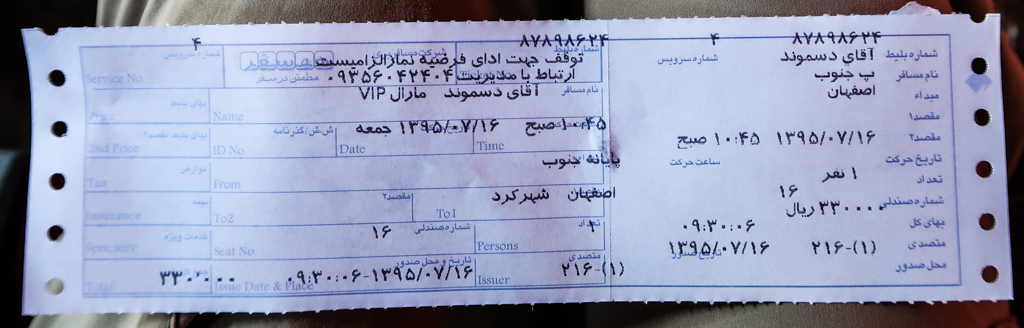 ۴ ۸۷۸۹۸۶۲۴ ۴ ۸۷۸۹۸۶۲۴
شماره بلیط آقای دسموند شماره سرویس
نام مسافر پ جنوب
مبداء اصفهان
مقصد۱
مقصد۲ ۱۳۹۵/۰۷/۱۶ ۱۰:۴۵ صبح
تاریخ حرکت ساعت حرکت
تعداد ۱ نفر
شماره صندلی ۱۶
بهای کل ۳۳۰۰۰۰ ریال ۰۹:۳۰:۰۶
متصدی ۲۱۶-(۱) ۱۳۹۵/۰۷/۱۶
محل صدور
شماره سرویس
Service No.
همسفر
مطمئن در سفر
شرکت مسافربری
توقف جهت ادای فرضیه نمازالزامیست
ارتباط با مدیریت ۰۹۳۵۶۰۴۲۴۰۴
نام مسافر آقای دسموند مارال VIP
Name
بهای بلیط
Price
۱۰:۴۵ صبح ۱۳۹۵/۰۷/۱۶ جمعه
Time Date
ش.ش/گذرنامه
ID No.
بهای بلیط مقصد۲
2nd Price
پایانه جنوب
From
عوارض
Tax
اصفهان شهرکرد
To1
مقصد۲
To2
بیمه
Insurance
تعداد ۱
Persons
شماره صندلی ۱۶
Seat No.
خدمات ویژه
متصدی ۲۱۶-(۱)
Issuer
تاریخ و محل صدور ۰۹:۳۰:۰۶-۱۳۹۵/۰۷/۱۶
Issue Date & Place
۳۳۰۰۰۰
Total